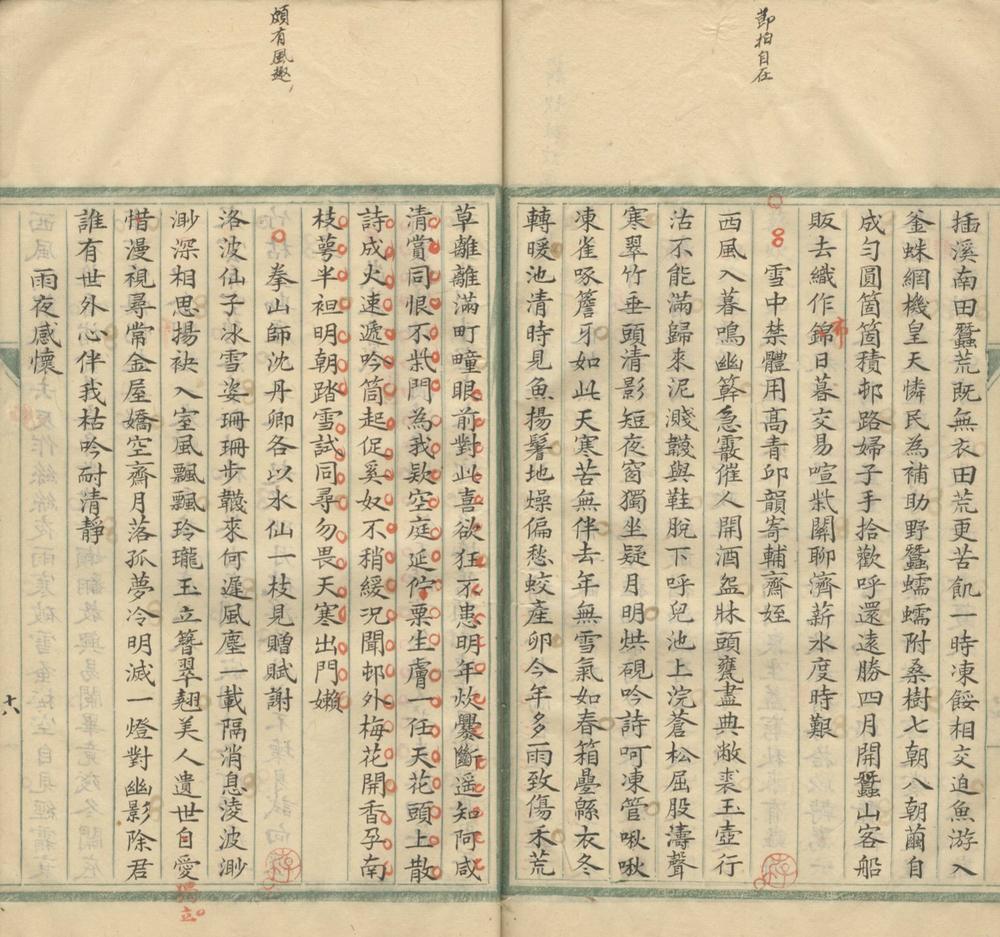 節拍自在
插溪南田蠶荒既無衣田荒更苦飢一時凍餒相交迫魚游入
釜蛛網機皇天憐民為補助野蠶蠕蠕附桑樹七朝八朝繭自
成勻圓箇箇積邨路婦子手拾歡呼還遠勝四月開蠶山客船
販去織作錦日暮交易喧柴關聊濟薪水度時艱
布
雪中禁體用高青邱韻寄輔齋姪
西風入暮鳴幽簳急霰催人開酒盌牀頭甕盡典敝裘玉壺行
沽不能滿歸來泥濺韈與鞋脫下呼兒池上浣蒼松屈股濤聲
寒翠竹垂頭清影短夜窗獨坐疑月明烘硯吟詩呵凍管啾啾
凍雀啄簷牙如此天寒苦無伴去年無雪氣如春箱疊緜衣冬
轉暖池清時見魚揚鬐地燥偏愁蛟產卵今年多雨致傷禾荒
頗有風趣
草離離滿町畽眼前對此喜欲狂不患明年炊爨斷遥知阿咸
清賞同恨不柴門為我欵空庭延佇粟生膚一任天花頭上散
詩成火速遞吟筒起促奚奴不稍緩況聞邨外梅花開香孕南
枝萼半袒明朝踏雪試同尋勿畏天寒出門嬾
拳山師沈丹卿各以水仙一枝見贈賦謝
洛波仙子冰雪姿珊珊步韈來何遲風塵一載隔消息淩波渺
渺深相思揚袂入室風飄飄玲瓏玉立簪翠翹美人遺世自愛
獨立
惜漫視尋常金屋嬌空齋月落孤夢冷明滅一燈對幽影除君
誰有世外心伴我枯吟耐清靜
雨夜感懷
十八